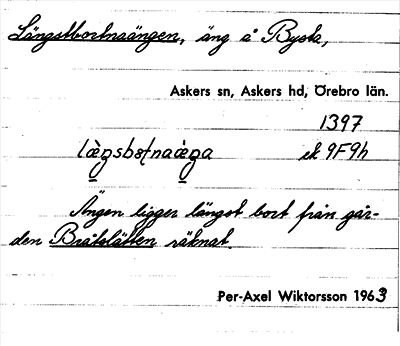 Längstbortnaängen, äng å Bysta,
Askers sn, Askers hd, Örebro län.
1397
ek 9F9h
Ängen ligger längst bort från går-
den Bråtslätten räknat.
Per-Axel Wiktorsson 1963